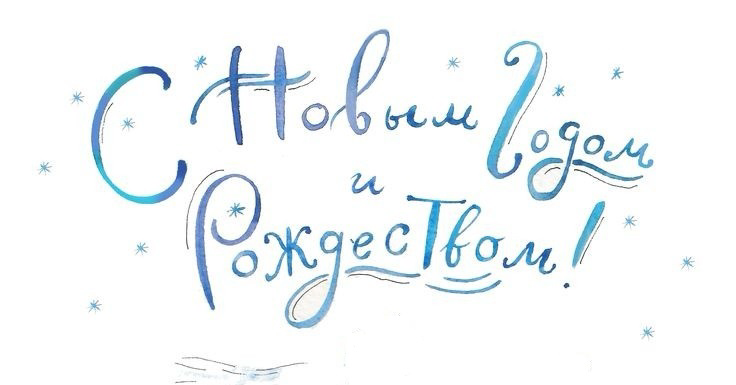 С Новым Годом
и
Рождеством!